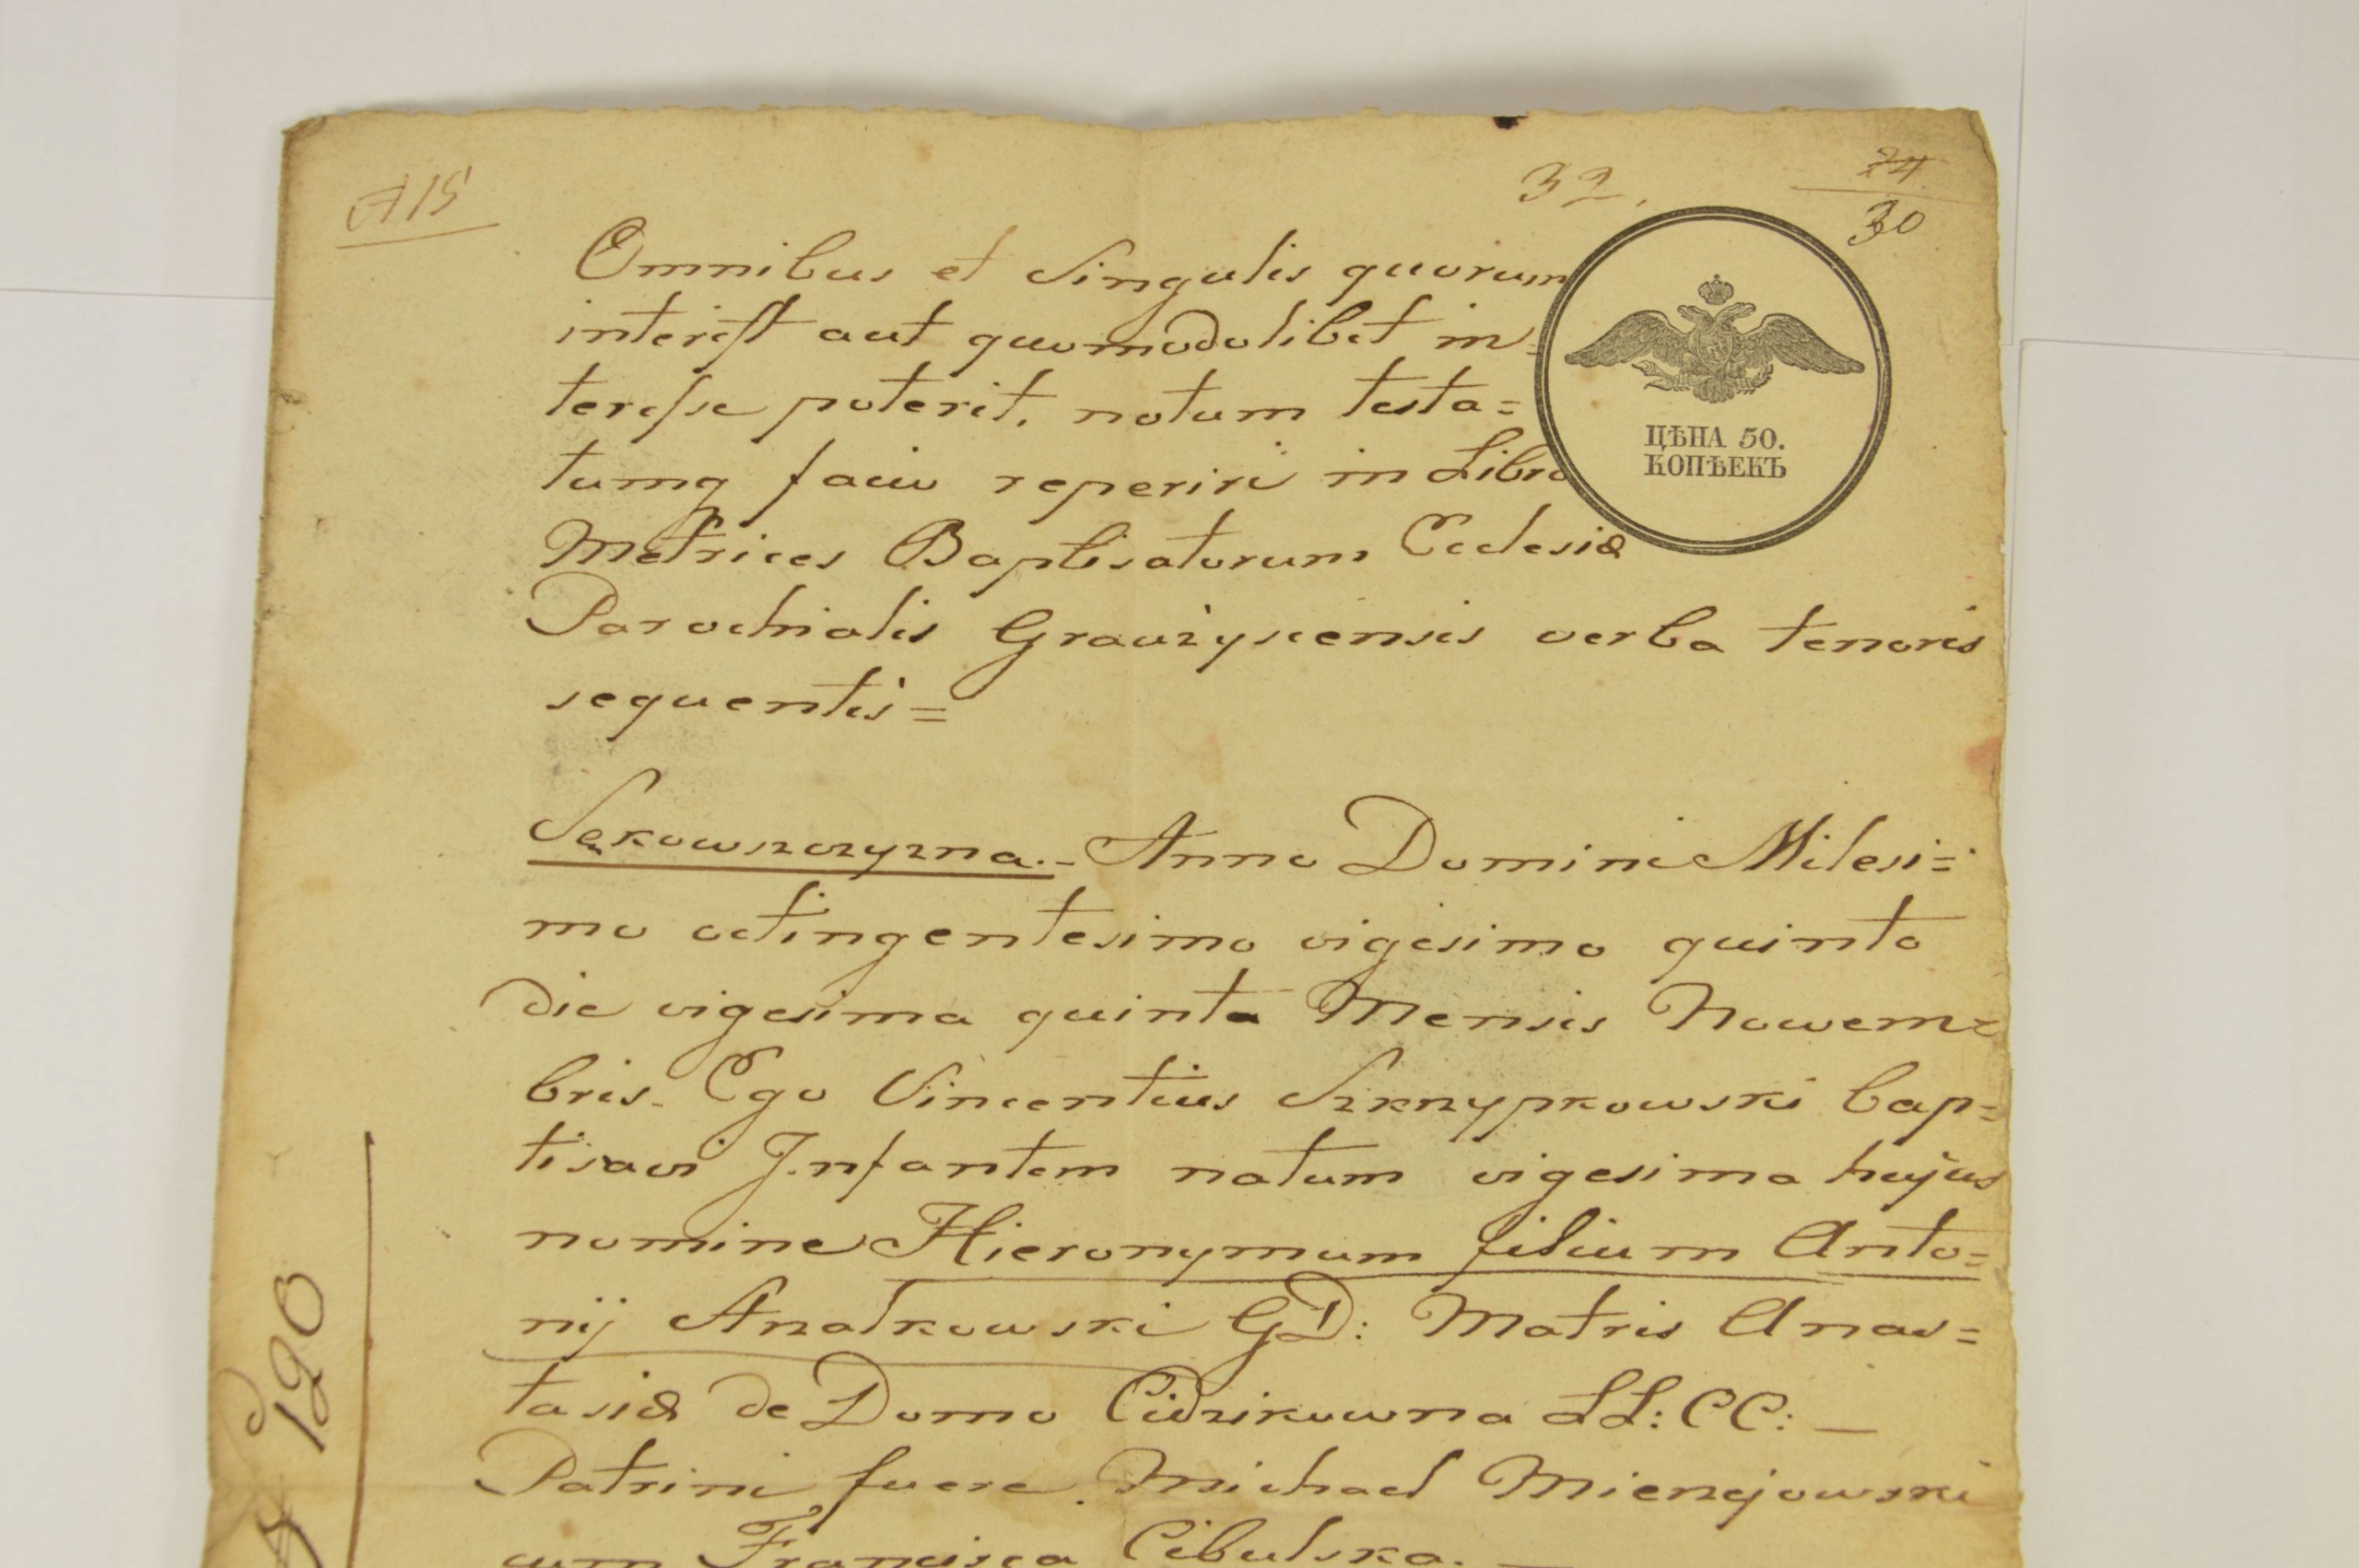 A 15
32.
24
30
Omnibus et Singulis quorum
interest aut quomodolibet in=
teresse poterit, notum testa=
tumq facio reperiri in Libro
Metrices Baptisatorum Ecclesiæ
Parochialis Graużyscensis verba tenoris
sequentis=
ЦѢНА 50.
КОПѢЕКЪ
Sękowszczyzna.- Anno Domini Milesi=
mo octingentesimo vigesimo quinto
die vigesima quinta Mensis Nowem=
bris. Ego Vincentius Szknypkowski bap=
tisavi Infantem natum vigesima hujus
nomine Hieronymum filium Anto=
nij Anatkowski GD: Matris Anas=
tasiæ de Domo Cidzikowna LL: CC: —
Patrini fuere. Michael Mienejowski
cum Francisca Cibulska. —
120